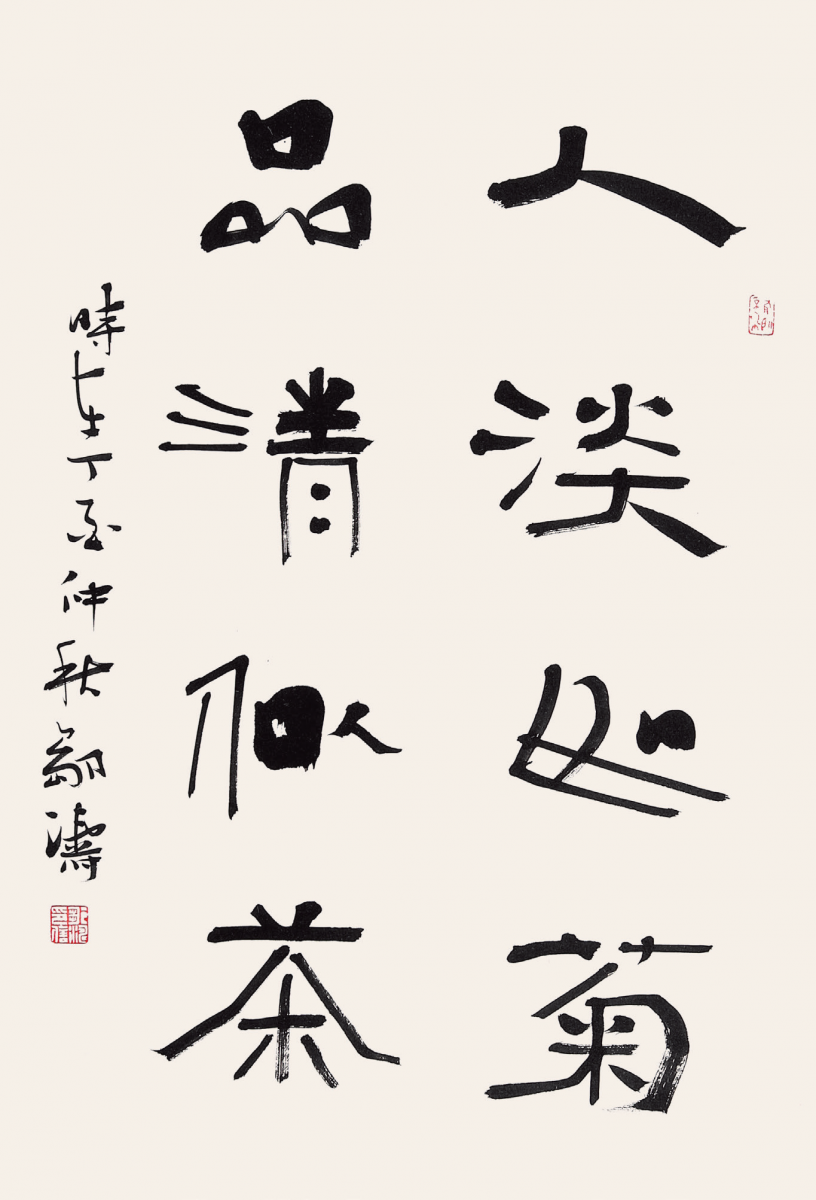 人淡如菊
品清似茶
時在丁亥仲秋鄒濤